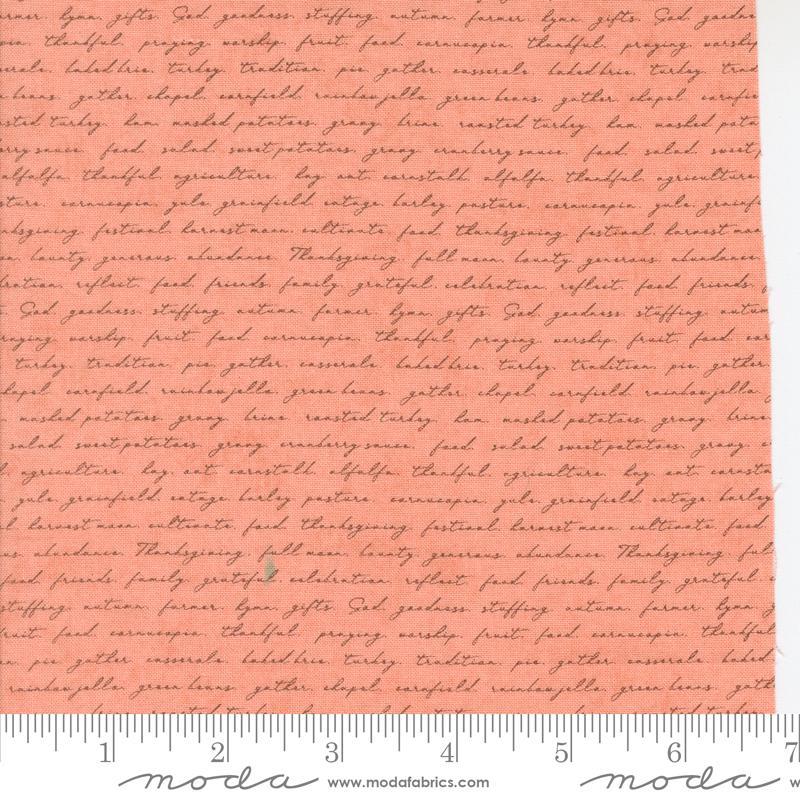 farmer. hymn. gifts. God. goodness. stuffing. autumn. farmer. hymn. gifts. God. goodne
thankful. praying. worship. fruit. food. cornucopia. thankful. praying. worship
casserole. baked brie. turkey. tradition. pie. gather. casserole. baked brie. turkey. trad
beans. gather. chapel. cornfield. rainbow jello. green beans. gather. chapel. cornfie
sted turkey. ham. mashed potatoes. gravy. brine. roasted turkey. ham. mashed pota
erry sauce. food. salad. sweet potatoes. gravy. cranberry sauce. food. salad. sweet
alfalfa. thankful. agriculture. hay. oat. cornstalk. alfalfa. thankful. agriculture
ture. cornucopia. yule. grainfield. cottage. barley. pasture. cornucopia. yule. grainf
nksgiving. festival. harvest moon. cultivate. food. thanksgiving. festival. harvest moo
n. bounty. generous. abundance. Thanksgiving. full moon. bounty. generous. abundance.
bration. reflect. food. friends. family. grateful. celebration. reflect. food. friends. f
God. goodness. stuffing. autumn. farmer. hymn. gifts. God. goodness. stuffing. autum
raying. worship. fruit. food. cornucopia. thankful. praying. worship. fruit. food. cor
turkey. tradition. pie. gather. casserole. baked brie. turkey. tradition. pie. gather.
chapel. cornfield. rainbow jello. green beans. gather. chapel. cornfield. rainbow jello.
mashed potatoes. gravy. brine. roasted turkey. ham. mashed potatoes. gravy. brine
salad. sweet potatoes. gravy. cranberry sauce. food. salad. sweet potatoes. gravy. c
l. agriculture. hay. oat. cornstalk. alfalfa. thankful. agriculture. hay. oat. cornsta
yule. grainfield. cottage. barley. pasture. cornucopia. yule. grainfield. cottage. barley
l. harvest moon. cultivate. food. thanksgiving. festival. harvest moon. cultivate. food
us. abundance. Thanksgiving. full moon. bounty. generous. abundance. Thanksgiving. ful
food. friends. family. grateful. celebration. reflect. food. friends. family. grateful. c
stuffing. autumn. farmer. hymn. gifts. God. goodness. stuffing. autumn. farmer. hymn. g
fruit. food. cornucopia. thankful. praying. worship. fruit. food. cornucopia. thankful
n. pie. gather. casserole. baked brie. turkey. tradition. pie. gather. casserole. baked
rainbow jello. green beans. gather. chapel. cornfield. rainbow jello. green beans. gath
1 2 3 4 5 6 7
moda www.modafabrics.com moda w